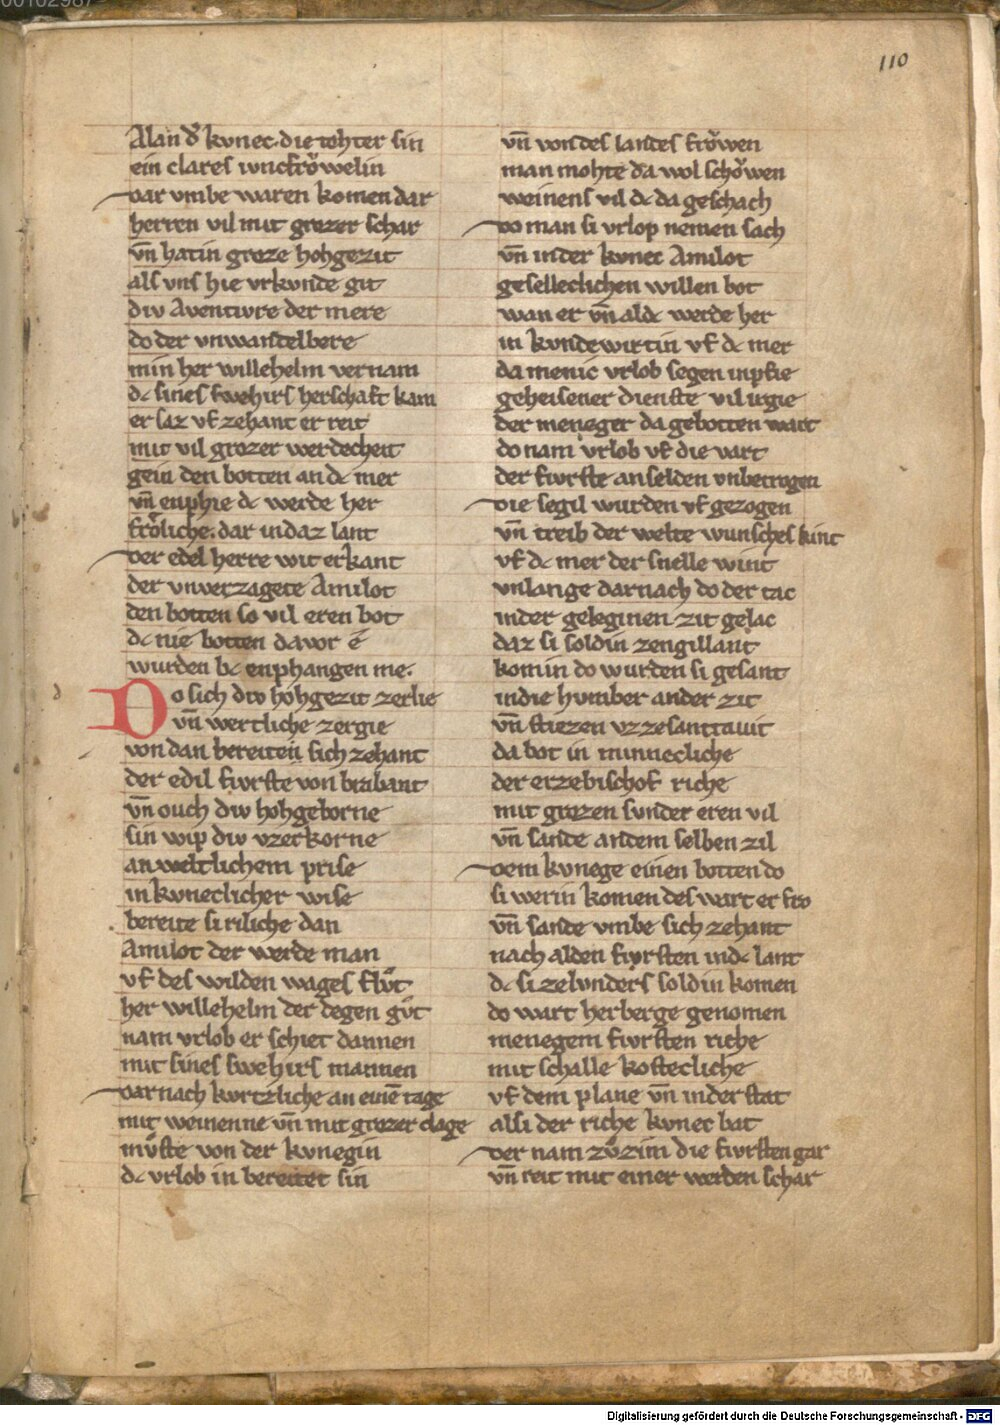 110
Alan dˢ kvnec. die tohter sin
ein clares iuncfrowelin
dar vmbe waren komen dar
herren vil mit grozer schar
vn̄ hatin groze hohgezit
als vns hie vrkunde git
div Aventivre der mere
do der vnwandelbere
min her willehelm vernam
dc sines swehirs herschaft kam
er saz vf zehant er reit
mit vil grozer werdecheit
gein den botten an dc mer
vn̄ enphie dc werde her
froliche. dar indaz lant
der edel herre wit erkant
der vnverzagete Amilot
den botten so vil eren bot
dc nie botten davor e
wurden bc enphangen me.
Do sich div hohgezit zerlie
vn̄ wertliche zergie
von dan bereiten sich zehant
der edil fivrste von brabant
vn̄ ouch div hohgeborne
sin wip div vzerkorne
an weltlichem prise
in kvneclicher wise
bereite si riliche dan
Amilot der werde man
vf des wilden wages flůt
her willehelm der degen gůt
nam vrlob er schiet dannen
mit sines swehirs mannen
dar nach kvrtzliche an einē tage
mit weinenne vn̄ mit grozer clage
můste von der kvnegin
dc vrlob in bereitet sin
vn̄ von des landes frowen
man mohte da wol schowen
weinens vil dc da geschach
do man si vrlop nemen sach
vn̄ in der kvnec Amilot
geselleclichen willen bot
wan er vn̄ al dc werde her
in kvnde wirtin vf dc mer
da menic vrlob segen inpfie
geheisener dienste vil irgie
der meneger da gebotten wart
do nam vrlob vf die vart
der fivrste an selden vnbetrogen
die segil wurden vf gezogen
vn̄ treib der welte wunsches kint
vf dc mer der snelle wint
vnlange darnach do der tac
inder geleginen zit gelac
daz si soldin zengillant
komin do wurden si gesant
indie hvmber ander zit
vn̄ stiezen vz zesanttavit
da bot in minnecliche
der erzebischof riche
mit grozen sunder eren vil
vn̄ sande andem selben zil
dem kvnege einen botten do
si werin komen des wart er fro
vn̄ sande vmbe sich zehant
nach alden fivrsten indc lant
dc si zelvnders soldin komen
do wart herberge genomen
menegem fivrsten riche
mit schalle kostecliche
vf dem plane vn̄ inder stat
als der riche kvnec bat
der nam zůzim die fivrsten gar
vn̄ reit mit einer werden schar
Digitalisierung gefördert durch die Deutsche Forschungsgemeinschaft - DFG